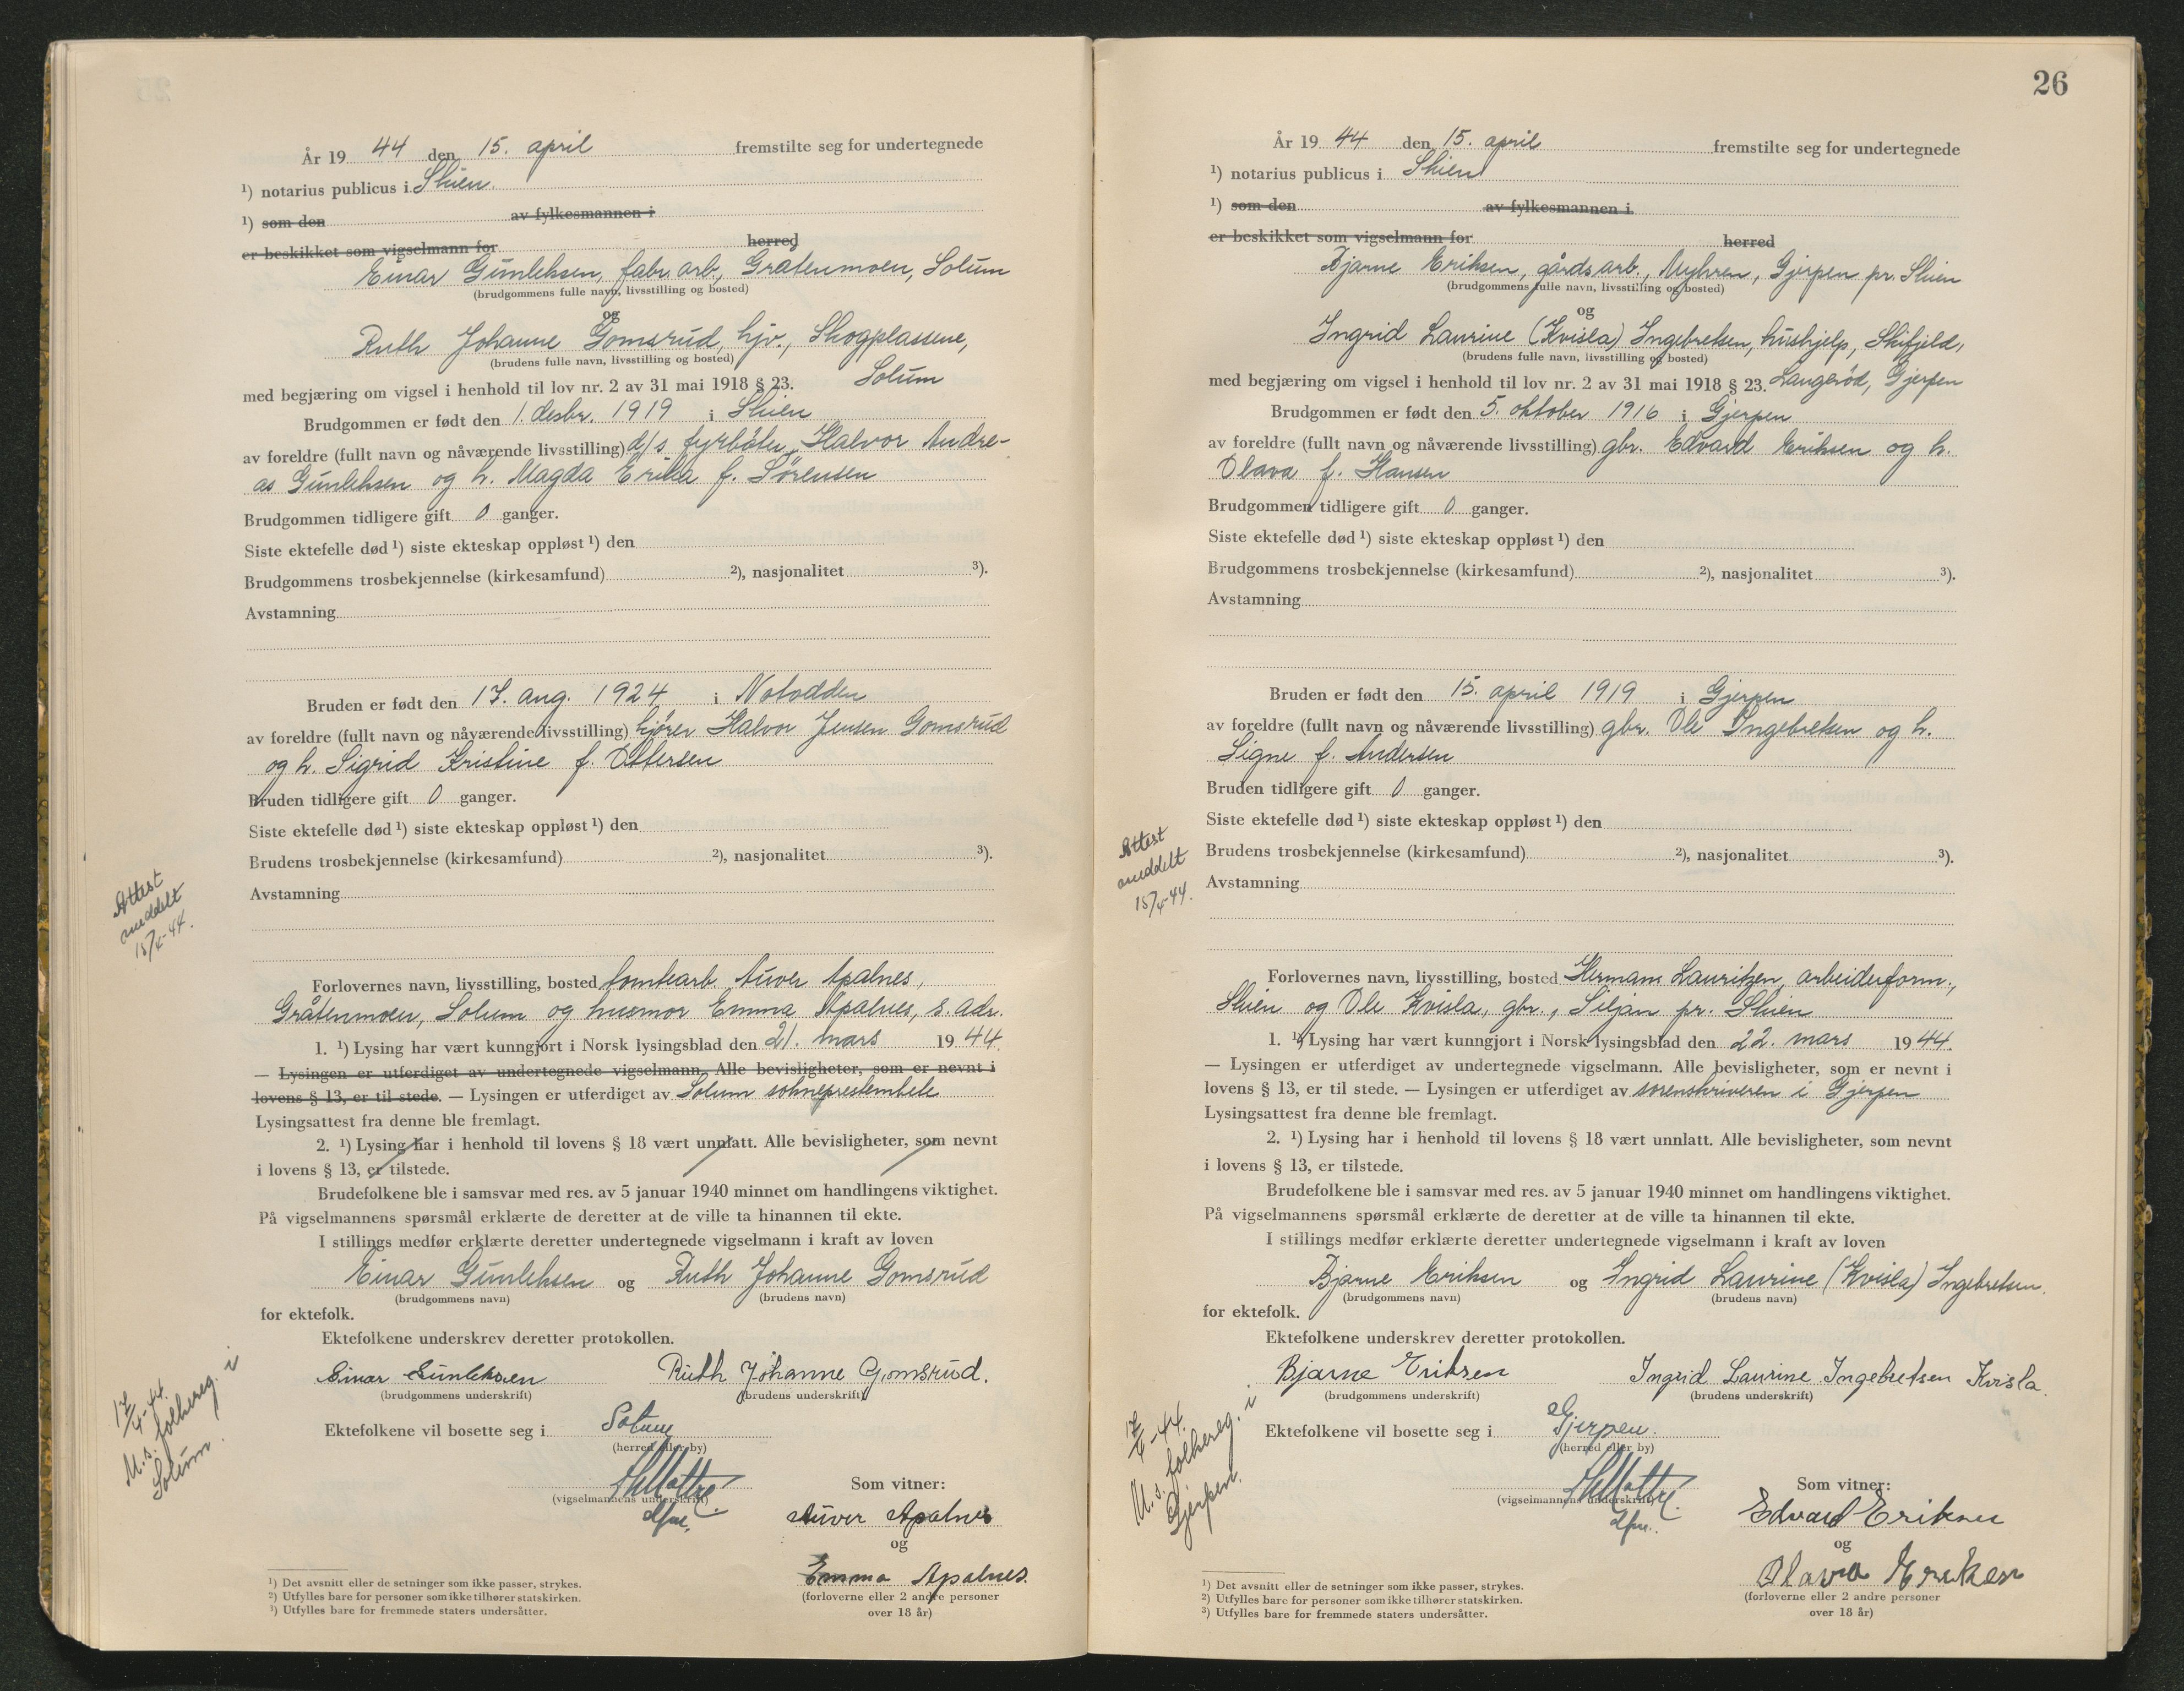 År 19 44 den 15. april fremstilte seg for undertegnede
¹) notarius publicus i Skien.
¹) som den av fylkesmannen i
er beskikket som vigselmann for herred
Einar Gunleksen, fabr. arb., Gråtenmoen, Solum
(brudgommens fulle navn, livsstilling og bosted)
og
Ruth Johanne Gomsrud, hjv., Skogplassene,
(brudens fulle navn, livsstilling og bosted)
med begjæring om vigsel i henhold til lov nr. 2 av 31 mai 1918 § 23. Solum
Brudgommen er født den 1. desbr. 1919 i Skien
av foreldre (fullt navn og nåværende livsstilling) d/s fyrbøter Halvor Andre-
as Gunleksen og h. Magda Erika f. Sørensen
Brudgommen tidligere gift 0 ganger.
Siste ektefelle død ¹) siste ekteskap oppløst ¹) den
Brudgommens trosbekjennelse (kirkesamfund) ²), nasjonalitet ³).
Avstamning
Bruden er født den 17. aug. 1924 i Notodden
av foreldre (fullt navn og nåværende livsstilling) kjører Halvor Jensen Gomsrud
og h. Sigrid Kristine f. Ottersen
Bruden tidligere gift 0 ganger.
Siste ektefelle død ¹) siste ekteskap oppløst ¹) den
Brudens trosbekjennelse (kirkesamfund) ²), nasjonalitet ³).
Attest
meddelt
15/4-44.
Avstamning
Forlovernes navn, livsstilling, bosted tomtearb. Auver Apalnes,
Gråtenmoen, Solum og husmor Emma Apalnes, s. adr.
1. ¹) Lysing har vært kunngjort i Norsk lysingsblad den 21. mars 19 44.
— Lysingen er utferdiget av undertegnede vigselmann. Alle bevisligheter, som er nevnt i
lovens § 13, er til stede. — Lysingen er utferdiget av Solum sokneprestembete
Lysingsattest fra denne ble fremlagt.
2. ¹) Lysing har i henhold til lovens § 18 vært unnlatt. Alle bevisligheter, som nevnt
i lovens § 13, er tilstede.
Brudefolkene ble i samsvar med res. av 5 januar 1940 minnet om handlingens viktighet.
På vigselmannens spørsmål erklærte de deretter at de ville ta hinannen til ekte.
I stillings medfør erklærte deretter undertegnede vigselmann i kraft av loven
Einar Gunleksen og Ruth Johanne Gomsrud
(brudgommens navn) (brudens navn)
for ektefolk.
Ektefolkene underskrev deretter protokollen.
Einar Gunleksen Ruth Johanne Gomsrud.
(brudgommens underskrift) (brudens underskrift)
17/4-44.
M.s. folkereg. i
Solum.
Ektefolkene vil bosette seg i Solum
(herred eller by)
Som vitner:
(vigselmannens underskrift)
dfm.
Auver Apalnes
og
Emma Apalnes.
(forloverne eller 2 andre personer
over 18 år)
¹) Det avsnitt eller de setninger som ikke passer, strykes.
²) Utfylles bare for personer som ikke tilhører statskirken.
³) Utfylles bare for fremmede staters undersåtter.
26
År 19 44 den 15. april fremstilte seg for undertegnede
¹) notarius publicus i Skien
¹) som den av fylkesmannen i
er beskikket som vigselmann for herred
Bjarne Eriksen, gårdsarb., Myhren, Gjerpen pr. Skien
(brudgommens fulle navn, livsstilling og bosted)
og
Ingrid Laurine (Kvisla) Ingebretsen, hushjelp, Skifjeld,
(brudens fulle navn, livsstilling og bosted)
med begjæring om vigsel i henhold til lov nr. 2 av 31 mai 1918 § 23. Langerød, Gjerpen
Brudgommen er født den 5. oktober 1916 i Gjerpen
av foreldre (fullt navn og nåværende livsstilling) gbr. Edvard Eriksen og h.
Olava f. Hansen
Brudgommen tidligere gift 0 ganger.
Siste ektefelle død ¹) siste ekteskap oppløst ¹) den
Brudgommens trosbekjennelse (kirkesamfund) ²), nasjonalitet ³).
Avstamning
Bruden er født den 15. april 1919 i Gjerpen
av foreldre (fullt navn og nåværende livsstilling) gbr. Ole Ingebretsen og h.
Signe f. Andersen
Bruden tidligere gift 0 ganger.
Siste ektefelle død ¹) siste ekteskap oppløst ¹) den
Attest
meddelt
15/4-44.
Brudens trosbekjennelse (kirkesamfund) ²), nasjonalitet ³).
Avstamning
Forlovernes navn, livsstilling, bosted Herman Lauritzen, arbeiderform.,
Skien og Ole Kvisla, gbr., Siljan pr. Skien
1. ¹) Lysing har vært kunngjort i Norsk lysingsblad den 22. mars 19 44.
— Lysingen er utferdiget av undertegnede vigselmann. Alle bevisligheter, som er nevnt i
lovens § 13, er til stede. — Lysingen er utferdiget av sorenskriveren i Gjerpen
Lysingsattest fra denne ble fremlagt.
2. ¹) Lysing har i henhold til lovens § 18 vært unnlatt. Alle bevisligheter, som nevnt
i lovens § 13, er tilstede.
Brudefolkene ble i samsvar med res. av 5 januar 1940 minnet om handlingens viktighet.
På vigselmannens spørsmål erklærte de deretter at de ville ta hinannen til ekte.
I stillings medfør erklærte deretter undertegnede vigselmann i kraft av loven
Bjarne Eriksen og Ingrid Laurine (Kvisla) Ingebretsen.
(brudgommens navn) (brudens navn)
for ektefolk.
Ektefolkene underskrev deretter protokollen.
Bjarne Eriksen Ingrid Laurine Ingebretsen Kvisla.
(brudgommens underskrift) (brudens underskrift)
17/4-44.
M.s. folkereg. i
Gjerpen.
Ektefolkene vil bosette seg i Gjerpen.
(herred eller by)
Som vitner:
(vigselmannens underskrift)
dfm.
Edvard Eriksen
og
Olava Eriksen
(forloverne eller 2 andre personer
over 18 år)
¹) Det avsnitt eller de setninger som ikke passer, strykes.
²) Utfylles bare for personer som ikke tilhører statskirken.
³) Utfylles bare for fremmede staters undersåtter.